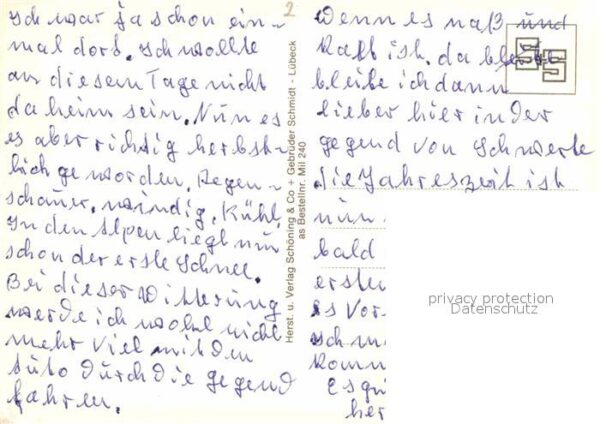 2
Ich war ja schon ein-
mal dort. Ich wollte
an diesem Tage nicht
daheim sein. Nun es
es aber richtig herbst-
lich geworden. Regen-
schauer, windig, kühl.
In den Alpen liegt nun
schon der erste Schnee.
Bei dieser Witterung
werde ich wohl nicht
mehr viel mit dem
Auto durch die Gegend
fahren.
Herst. u. Verlag Schöning & Co + Gebrüder Schmidt - Lübeck
as Bestellnr. Mil 240
Wenn es naß und
kalt ist, da
bleibe ich dann
lieber hier in der
Gegend von Schwerte
die Jahreszeit ist
nun
bald
ersten
es vor-
komm
Es
her
privacy protection
Datenschutz